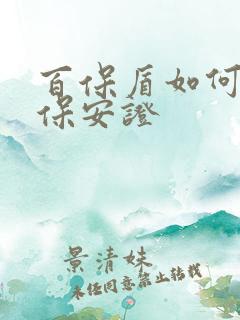 百保盾如何
保安證
景清妹
未經同意禁止轉載